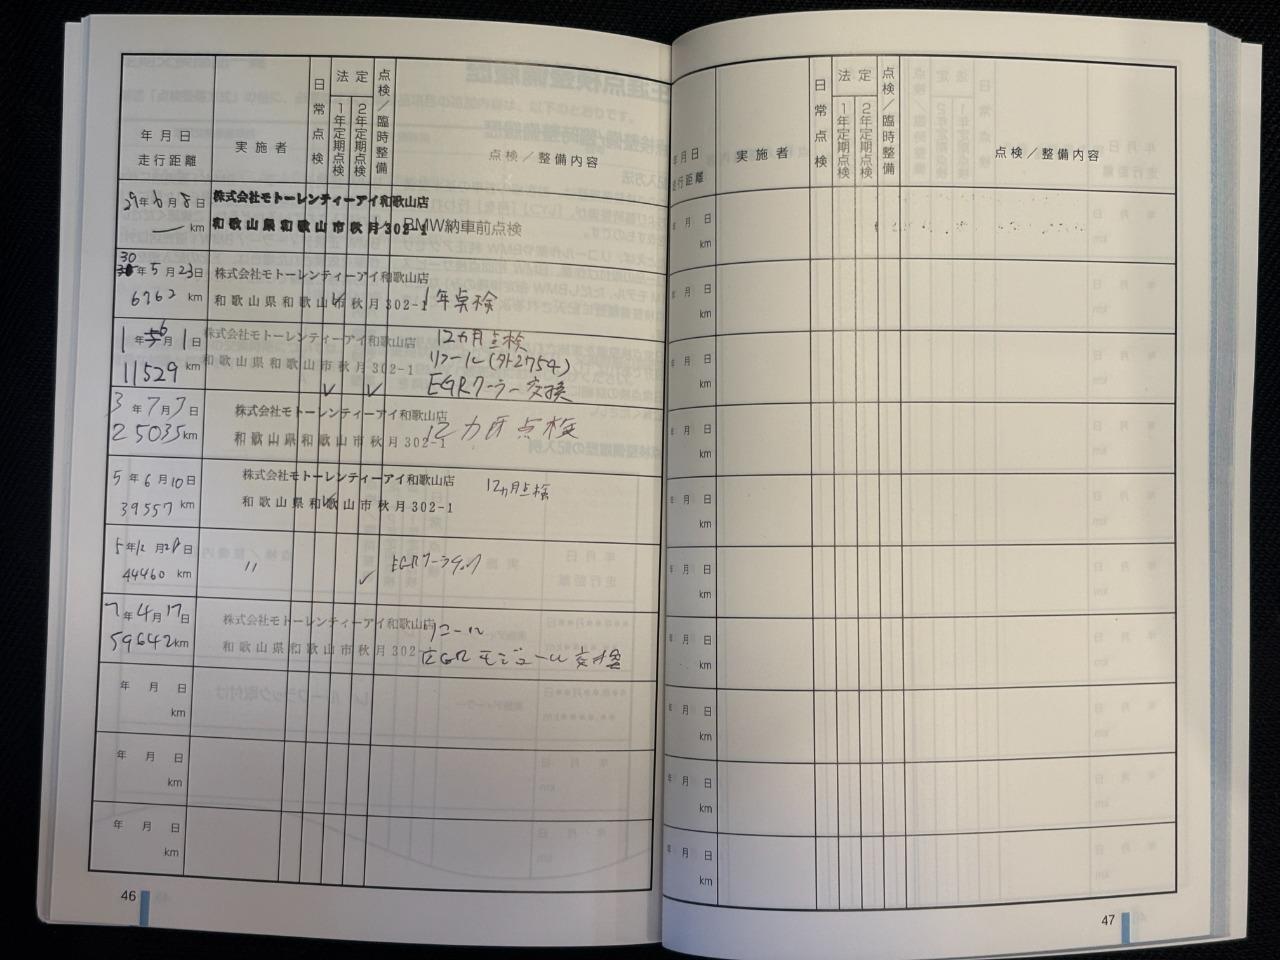 年月日
走行距離
実施者
日常点検
法定
1年定期点検
2年定期点検
点検／臨時整備
点検／整備内容
29年6月8日 株式会社モトーレンティーアイ和歌山店
— km 和歌山県和歌山市秋月302-1 BMW納車前点検
30年5月23日 株式会社モトーレンティーアイ和歌山店
6762 km 和歌山県和歌山市秋月302-1 1年点検
1年6月1日 株式会社モトーレンティーアイ和歌山店 12カ月点検
和歌山県和歌山市秋月302-1 リコール(外2754)
11529 km ✓ ✓ EGRクーラー交換
3年7月7日 株式会社モトーレンティーアイ和歌山店
25035km 和歌山県和歌山市秋月302-1 12カ月点検
5年6月10日 株式会社モトーレンティーアイ和歌山店 12ヵ月点検
39557 km 和歌山県和歌山市秋月302-1
5年12月28日
44460 km 〃 ✓ EGRクーラチェック
7年4月17日 株式会社モトーレンティーアイ和歌山店 リコール
59642km 和歌山県和歌山市秋月302- EGRモジュール交換
年 月 日
km
年 月 日
km
年 月 日
km
46
年月日
走行距離
実施者
日常点検
法定
1年定期点検
2年定期点検
点検／臨時整備
点検／整備内容
年 月 日
km
年 月 日
km
年 月 日
km
年 月 日
km
年 月 日
km
年 月 日
km
年 月 日
km
年 月 日
km
年 月 日
km
年 月 日
km
47